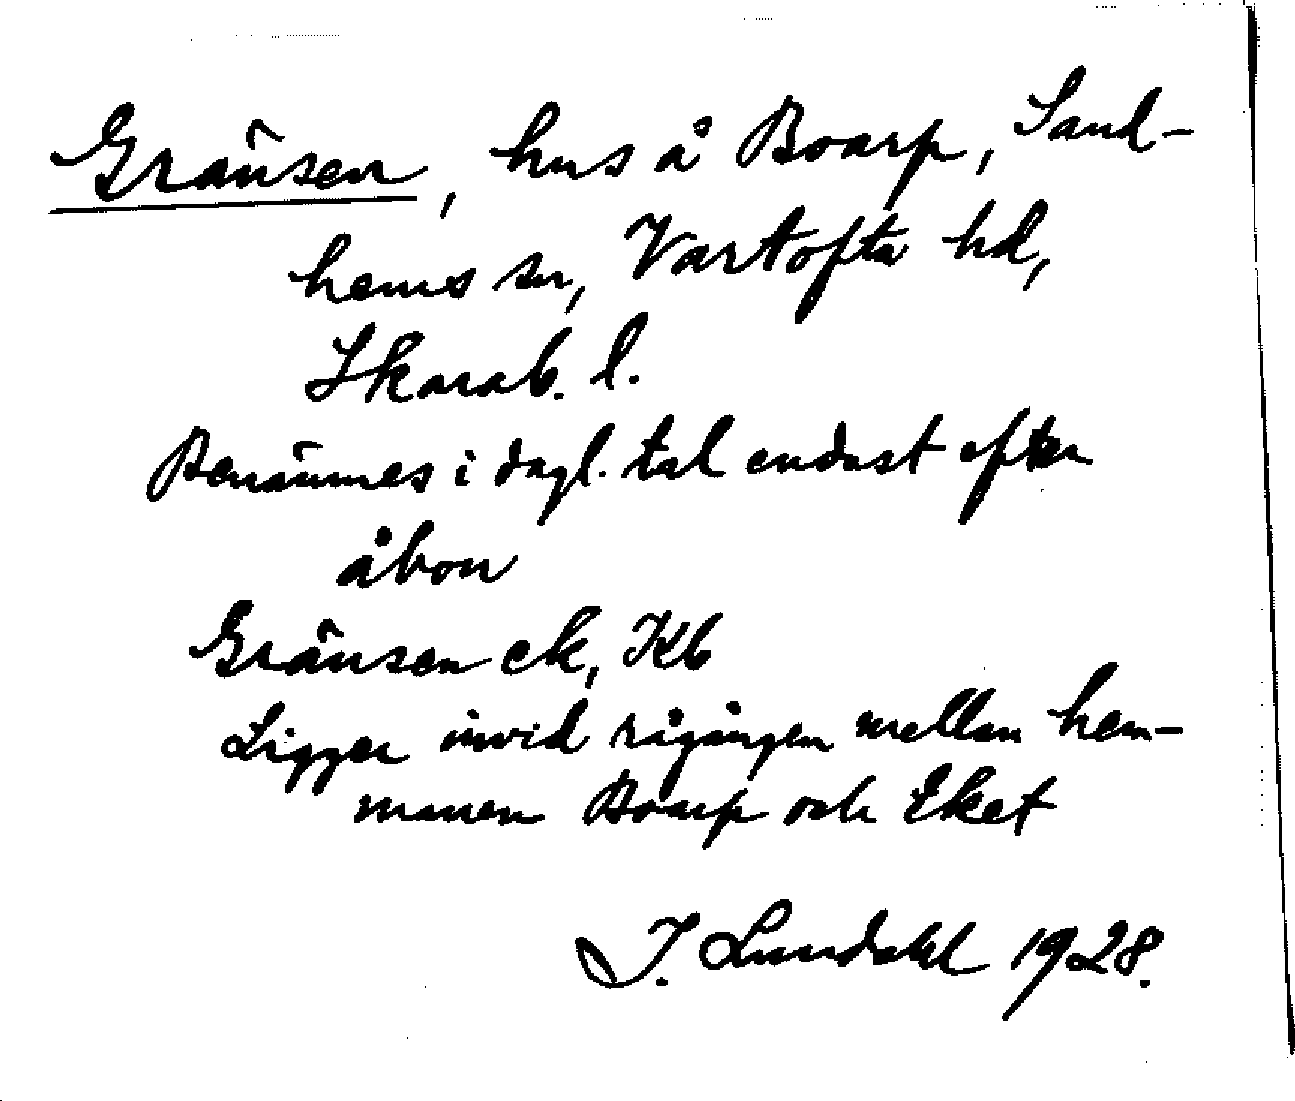 Gränsen, hus å Boarp, Sand-
hems sn, Vartofta hd,
Skarab. l.
Benämnes i dagl. tal endast efter
åbon
Gränsen ek, Kb
Ligger invid rågången mellan hem-
manen Boarp och Eket
I. Lundahl 1928.